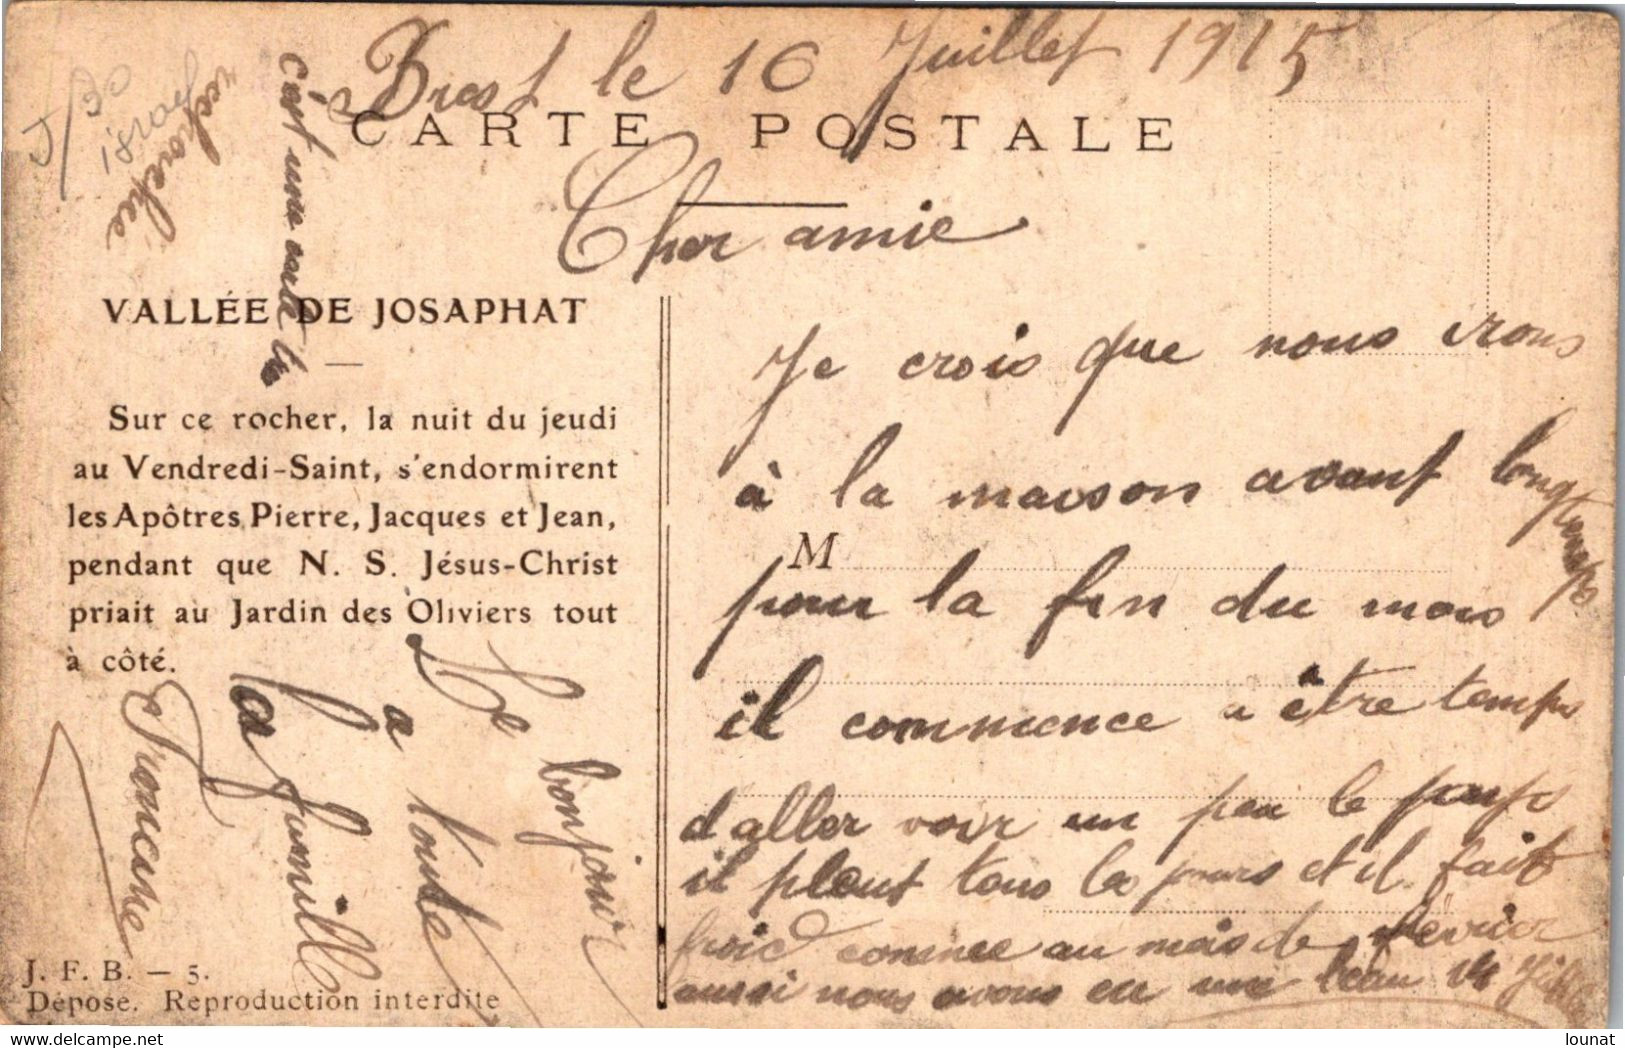 Brest le 16 Juillet 1915
CARTE POSTALE
Cher amie
Je crois que nous irons
à la maison avant longtemps
M
pour la fin du mois
il commence a être temps
d'aller voir un peu le pays
il pleut tous les jours et il fait
froid comme au mois de février
aussi nous avons eu un beau 14 Jllet
VALLÉE DE JOSAPHAT
Sur ce rocher, la nuit du jeudi
au Vendredi-Saint, s'endormirent
les Apôtres Pierre, Jacques et Jean,
pendant que N. S. Jésus-Christ
priait au Jardin des Oliviers tout
à côté.
Le bonjour
a toute
la famille
c'est une carte
J. F. B. — 5.
Déposé. Reproduction interdite
lounat
www.delcampe.net